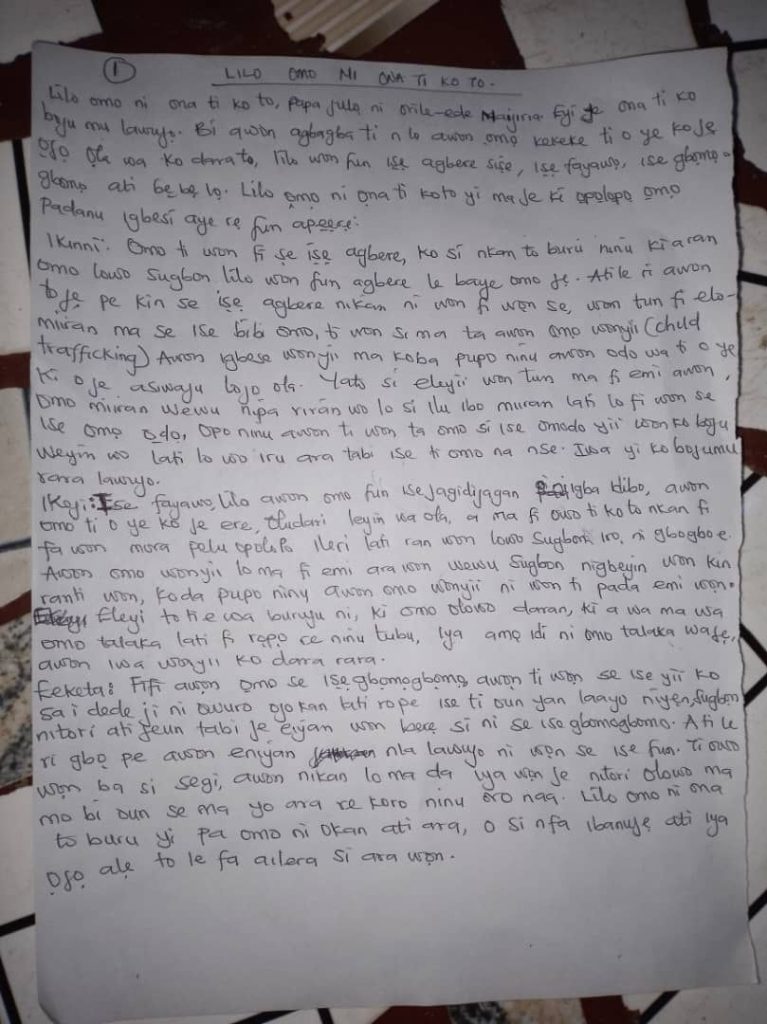 1
LILO OMO NI ONA TI KO TO.
Lilo omo ni ona ti ko to, papa julo ni orile-ede Naijiria Eyi je ona ti ko
boju mu lawujo. Bi awon agbagba ti n lo awon omo kekeke ti o ye ko je
ojo ola wa ko dara to, lilo won fun ise agbere sise, ise fayawo, ise gbomo-
gbomo ati be be lo. Lilo omo ni ona ti koto yi ma je ki opolopo omo
padanu igbesi aye re fun apeere:
Ikinni: Omo ti won fi se ise agbere, ko si nkan to buru ninu ki a ran
omo lowo sugbon lilo won fun agbere le baye omo je. Atile ri awon
to je pe kin se ise agbere nikan ni won fi won se, won tun fi elo-
miiran ma se ise bibi omo, ti won si ma ta awon omo wonyii (child
trafficking) Awon igbese wonyii ma koba pupo ninu awon odo wa ti o ye
ki o je asiwaju lojo ola. Yato si eleyii won tun ma fi emi awon
omo miiran wewu nipa riran wo lo si ilu ibo miran lati lo fi won se
ise omo odo, opo ninu awon ti won ta omo si ise omodo yii won ko boju
weyin wo lati lo wo iru ara tabi ise ti omo na nse. Iwa yi ko bojumu
rara lawujo.
Ikeji: Ise fayawo, lilo awon omo fun ise jagidijagan igba idibo, awon
omo ti o ye ko je ere, Oludari leyin wa ola, a ma fi owo ti ko to nkan fi
fa won mora pelu opolopo ileri lati ran won lowo sugbon, iro, ni gbogbo e.
Awon omo wonyii lo ma fi emi ara won wewu sugbon nigbeyin won kin
ranti won, koda pupo ninu awon omo wonyii ni won ti pada emi won.
Eleyi to tie wa buruju ni, ki omo olowo daran, ki a wa ma wa
omo talaka lati fi ropo re ninu tubu, iya amo idi ni omo talaka wa je,
awon iwa wonyii ko dara rara.
Eeketa: Fifi awon omo se ise gbomogbomo, awon ti won se ise yii ko
sa i dede ji ni owuro ojo kan lati ro pe ise ti oun yan laayo niyen, sugbon
nitori ati jeun tabi je eiyan won bere si ni se ise gbomogbomo. Ati le
ri gbo pe awon eniyan nla lawujo ni won se ise fun. Ti owo
won ba si segi, awon nikan lo ma da iya won je nitori olowo ma
mo bi oun se ma yo ara re koro ninu oro naa. Lilo omo ni ona
to buru yi pa omo ni okan ati ara, o si nfa ibanuje ati iya
ojo ale to le fa ailera si ara won.